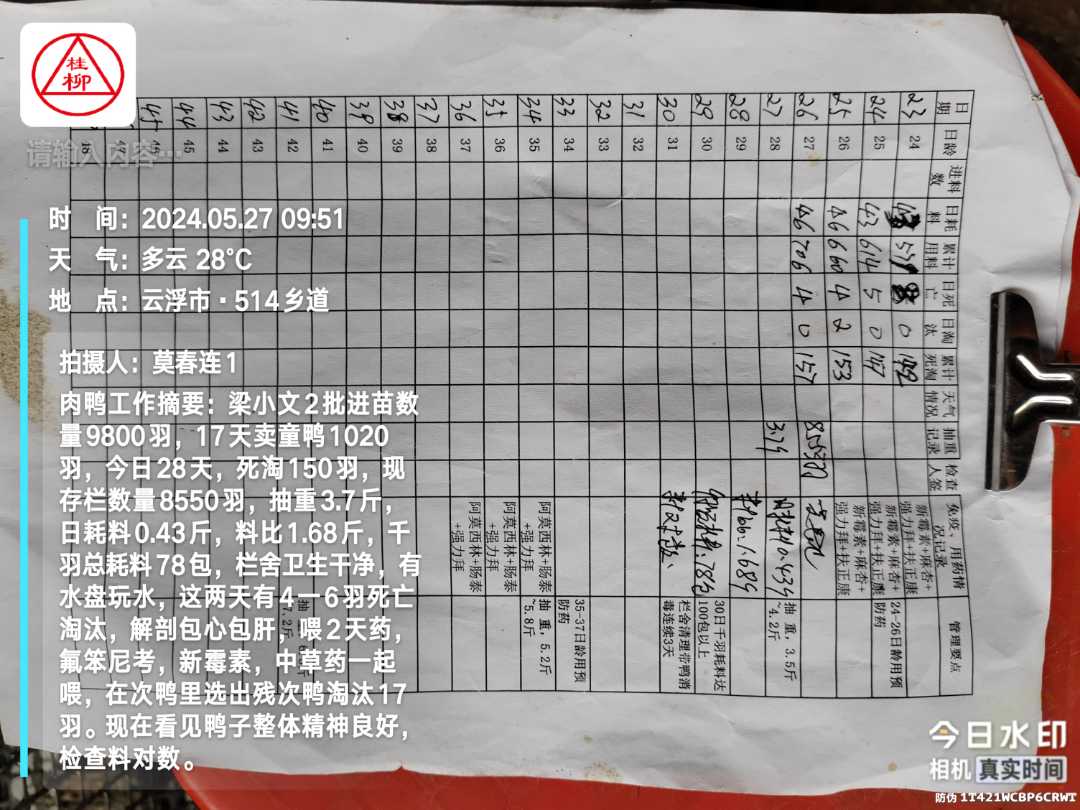 桂
柳
请输入内容…
时 间：2024.05.27 09:51
天 气：多云 28℃
地 点：云浮市·514乡道
拍摄人：莫春连1
肉鸭工作摘要：梁小文2批进苗数
量9800羽，17天卖童鸭1020
羽，今日28天，死淘150羽，现
存栏数量8550羽，抽重3.7斤，
日耗料0.43斤，料比1.68斤，千
羽总耗料78包，栏舍卫生干净，有
水盘玩水，这两天有4一6羽死亡
淘汰，解剖包心包肝，喂2天药，
氟笨尼考，新霉素，中草药一起
喂，在次鸭里选出残次鸭淘汰17
羽。现在看见鸭子整体精神良好，
检查料对数。
日期 日龄 进料数 日耗料 累计用料 日死亡 日淘汰 累计死淘 天气情况 抽重记录 检查人签 免疫、用药情况记录 管理要点
23 24 0 新霉素+麻杏+强力拜+扶正康
24 25 43 614 5 0 147 新霉素+麻杏+强力拜+扶正康 24-26日龄用预防药
25 26 46 660 4 2 153 新霉素+麻杏+强力拜+扶正康
26 27 46 706 4 0 157 8550羽
27 28 3.7斤 日耗料0.43斤 抽重，3.5斤~4.2斤
28 29 料比1.68斤
29 30 78包 30日千羽耗料达100包以上
30 31 栏舍清理带鸭消毒连续3天
31 32
32 33
33 34 35-37日龄用预防药
34 35 阿莫西林+肠泰+强力拜 抽重，5.2斤~5.8斤
35 36 阿莫西林+肠泰+强力拜
36 37 阿莫西林+肠泰+强力拜
37 38
38 39
39 40
40 41
41 42
42 43
43 44
44 45
45 46
47
48
今日水印
相机 真实时间
防伪 1T421WCBP6CRWT